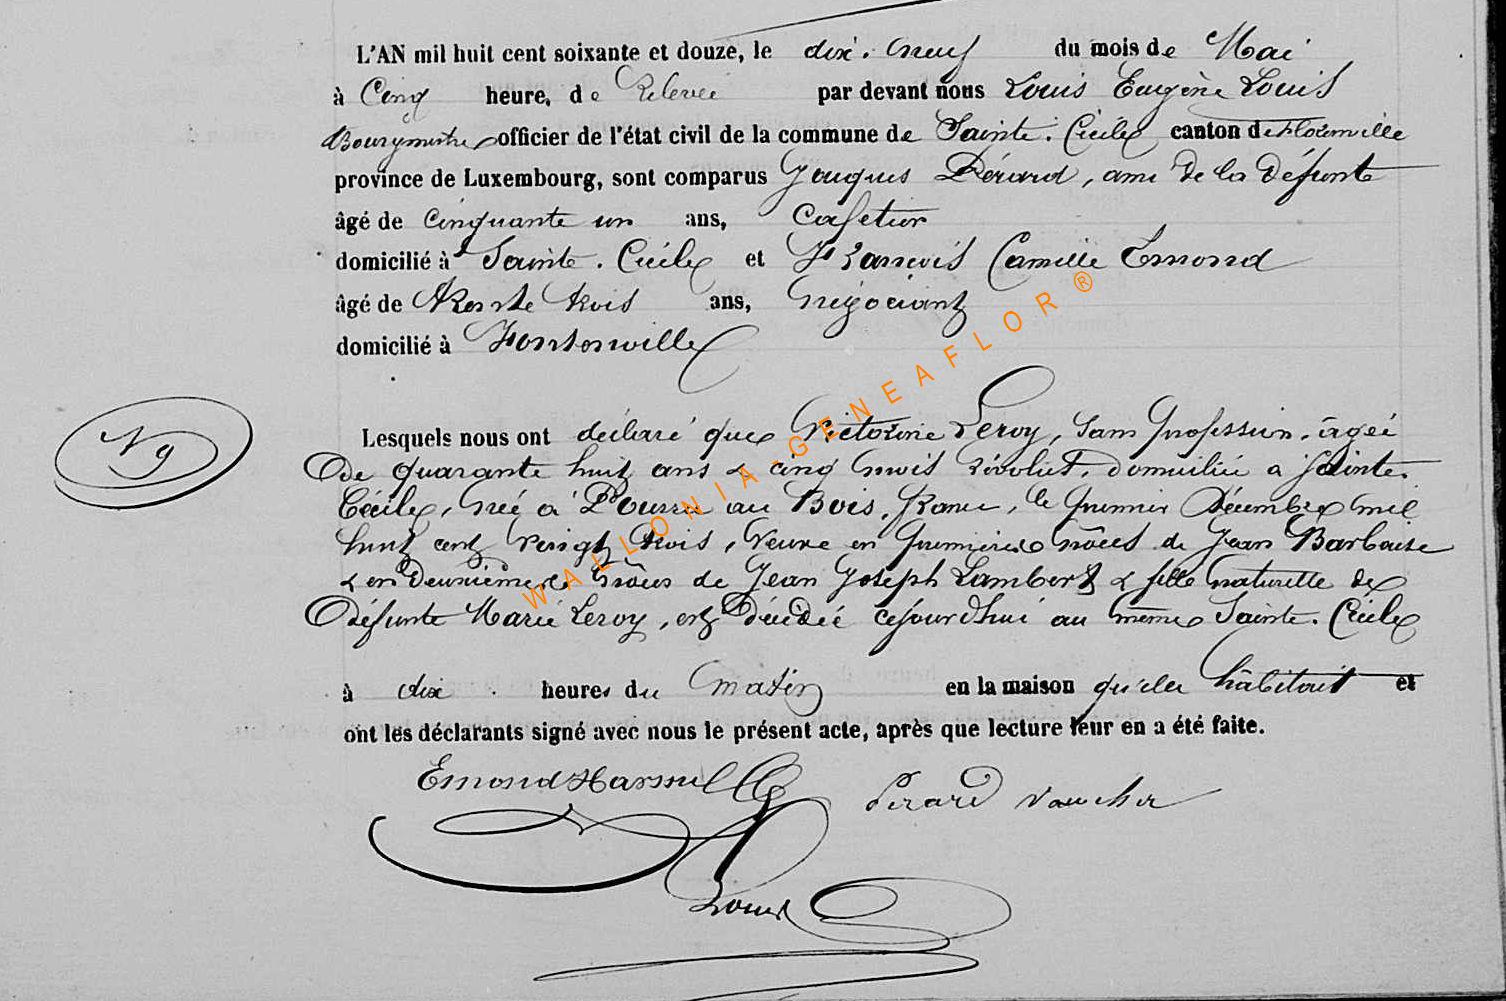 L'AN mil huit cent soixante et douze, le dix. neuf du mois de Mai
à Cinq heure, de Relevée par devant nous Louis Eugène Louis
Bourgmestre officier de l'état civil de la commune de Sainte. Cécile canton de Florenville
province de Luxembourg, sont comparus Jacques Pérard, ami de la défunte
âgé de cinquante un ans, Cafetier
domicilié à Sainte. Cécile et François Camille Emond
âgé de trente trois ans, négociant
domicilié à Fontenoille
N 9
Lesquels nous ont déclaré que Victorine Leroy, sans profession, âgée
de quarante huit ans & cinq mois révolus, domiciliée à Sainte.
Cécile, née à Pourru au Bois, france, le premier Décembre mil
huit cent vingt trois, veuve en premières nôces de Jean Barbaise
& en deuxièmes nôces de Jean Joseph Lambert & fille naturelle de
défunte Marie Leroy, est décédée cejourd'hui au même Sainte. Cécile
à dix heures du matin en la maison qu'elle habitait et
ont les déclarants signé avec nous le présent acte, après que lecture leur en a été faite.
Emond Pérard
Louis
WALLONIA-GENEAFLOR®